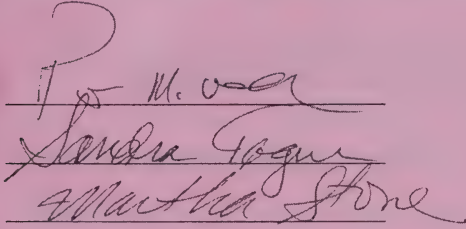 M.
Sandra Togue
Martha Stone